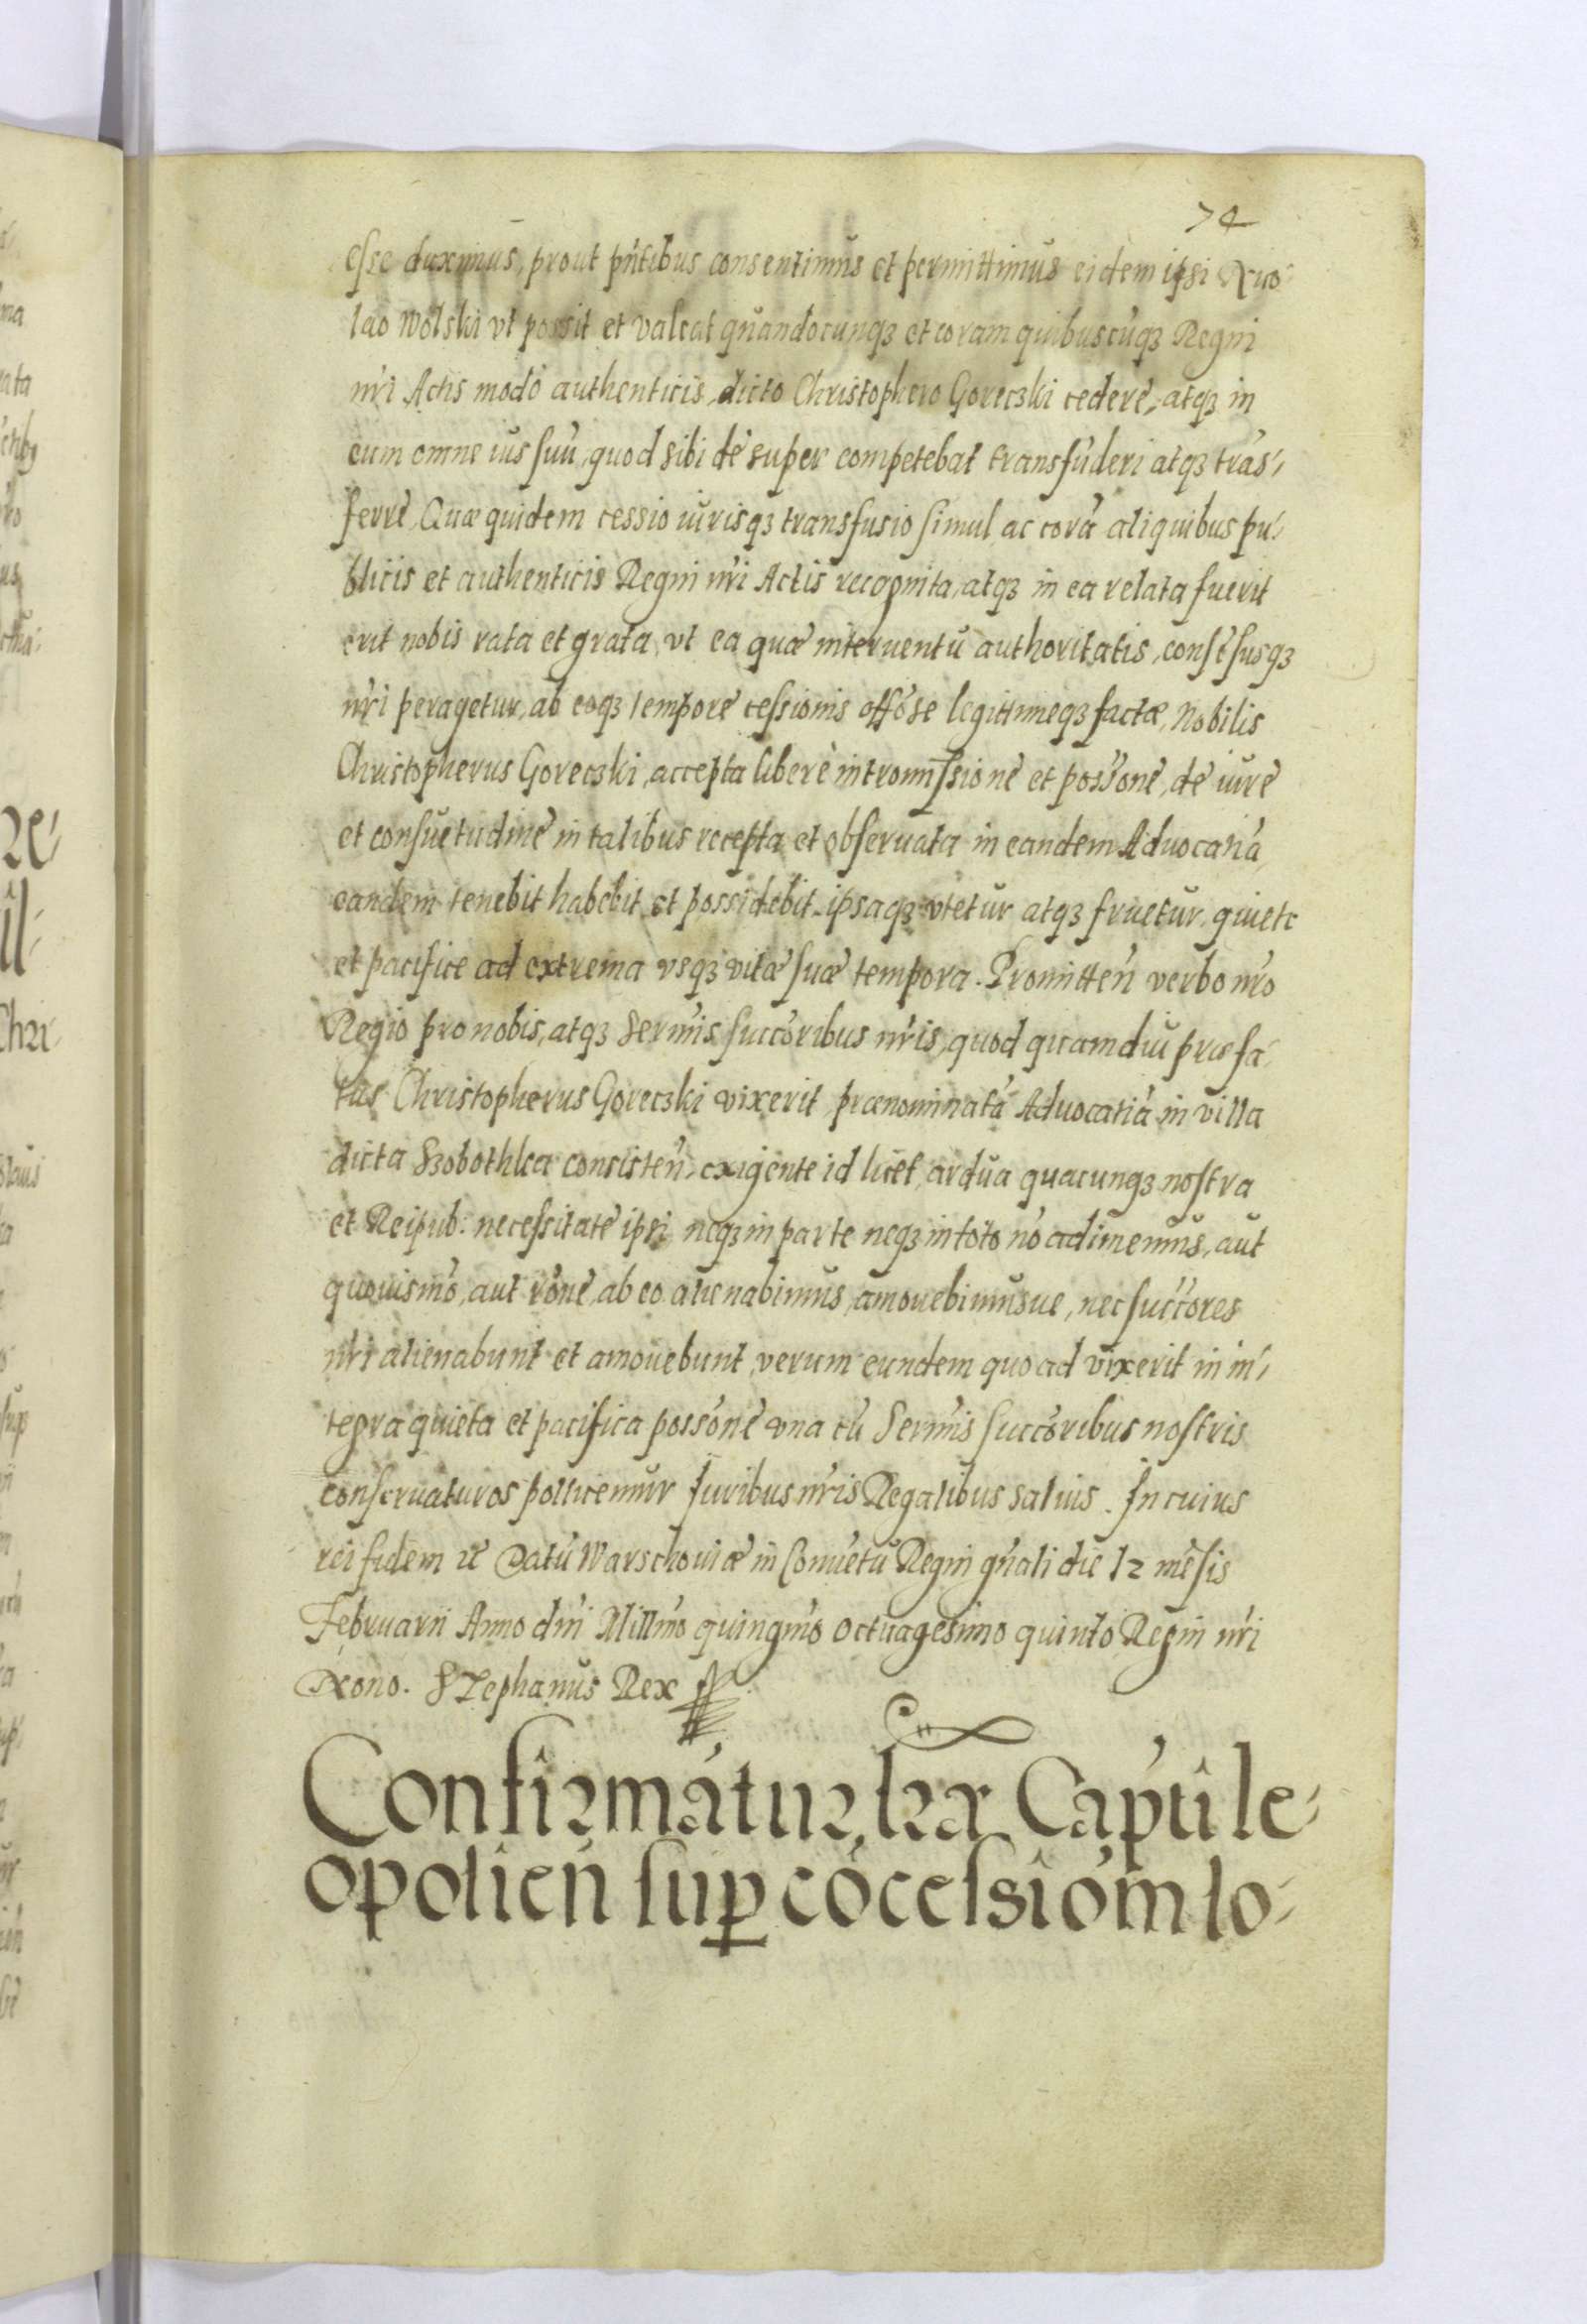 74
esse duximus, prout pñtibus consentimus et permittimus eidem ipsi Nico-
lao Wolski vt possit et valeat quandocunqз et coram quibuscuqз Regni
nr̃i Actis modo authenticis, dicto Christophero Goreczki cedere, atqз in
eum omne ius suũ, quod sibi de super competebat transfũderi atqз trãs-
ferre. Quæ quidem cessio iurisqз transfusio simul ac corã aliquibus pu-
blicis et authenticis Regni nr̃i Actis recognita, atqз in ea relata fuerit
erit nobis rata et grata, vt ea quæ interuentũ authoritatis, consẽsusqз
nr̃i peragetur, ab eoqз tempore cessionis offõse legittimeqз factæ, Nobilis
Christopherus Goreczki, accepta libere intromissione et possõne, de iure
et consuetudine in talibus recepta et obseruata in eandem Aduocatiã,
eandem tenebit habebit et possidebit, ipsaqз vtetur atqз fruetur, quiete
et pacifice ad extrema vsqз vitæ suæ tempora. Promitteñ verbo nr̃o
Regio pro nobis, atqз Serm̃is succõribus nr̃is, quod quamdiu præfa-
tus Christopherus Goreczki vixerit, prænominatã Aduocatiã in villa
dicta Szobothka consisteñ, exigente id licet, ardua quacunqз nostra
et Reipub: necessitate ipsi neqз in parte neqз in toto nõ adimemus, aut
quouismõ, aut rõne, ab eo alienabimus, amouebimusue, nec succõres
nr̃i alienabunt et amouebunt, verum eundem quoad vixerit in in-
tegra quieta et pacifica possõne vna cũ Serm̃is succõribus nostris
conseruaturos pollicemur Juribus nr̃is Regalibus saluis. In cuius
rei fidem zc Datũ Warschouiæ in Conuẽtu Regni gñali die 12 mẽsis
Februarii Anno dñi Millmõ quingmõ octuagesimo quinto, Regni nr̃i
Nono. Stephanus Rex
Confirmãtur lr̃æ Capt̃uli le-
opolieñ sup cõcessiõm lo-